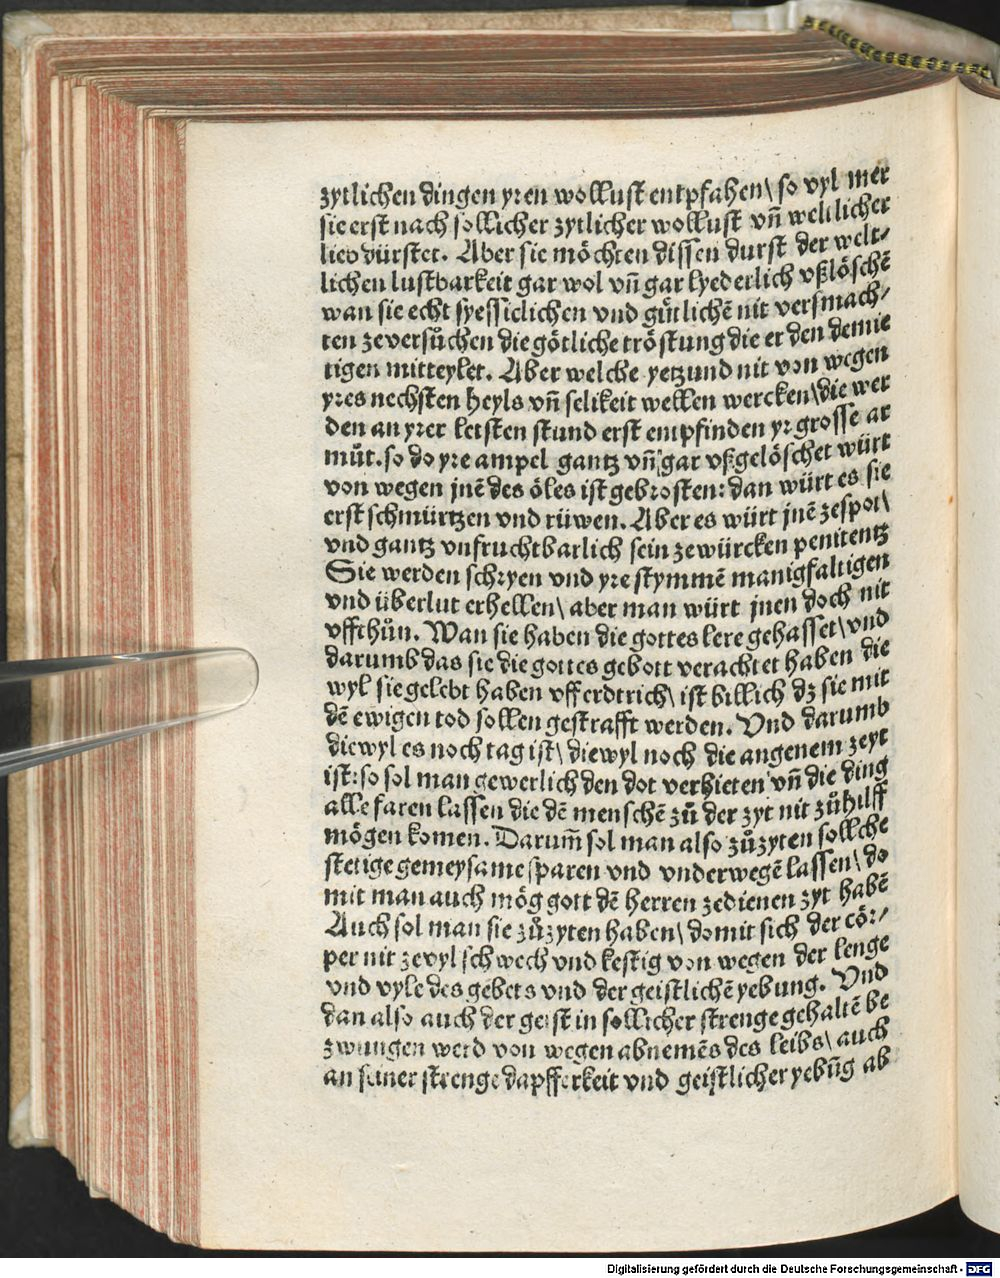 zytlichen dingen yren wollust entpfahen\ so vyl mer
sie erst nach sollicher zytlicher wollust vñ weltlicher
lieb dürstet. Aber sie möchten dissen durst der welt⸗
lichen lustbarkeit gar wol vñ gar lyederlich vßlöschē
wan sie echt syessiclichen vnd gůtlichē nit versmach⸗
ten ze versůchen die götliche tröstung die er den demie
tigen mitteylet. Aber welche yetzund nit von wegen
yres nechsten heyls vñ selikeit wellen wercken\ die wer
den an yrer letsten stund erst empfinden yr grosse ar
můt. so do yre ampel gantz vñ gar vßgelöschet würt
von wegen jnē des öles ist gebrosten: dan würt es sie
erst schmürtzen vnd rüwen. Aber es würt jnē ze spot\
vnd gantz vnfruchtbarlich sein ze würcken penitentz
Sie werden schryen vnd yre stymmē manigfaltigen
vnd überlut erhellen\ aber man würt jnen doch nit
vffthůn. Wan sie haben die gottes lere gehasset\ vnd
darumb das sie die gottes gebott verachtet haben die
wyl sie gelebt haben vff erdtrich\ ist billich dz sie mit
dē ewigen tod sollen gestrafft werden. Vnd darumb
diewyl es noch tag ist\ diewyl noch die angenem zeyt
ist: so sol man gewerlich den dot verhieten vñ die ding
alle faren lassen die dē menschē zů der zyt nit zů hilff
mögen komen. Darum̄ sol man also zů zyten sollche
stetige gemeysame sparen vnd vnderwegē lassen\ do
mit man auch mög gott dē herren ze dienen zyt habē
Auch sol man sie zů zyten haben\ domit sich der cör⸗
per nit ze vyl schwech vnd kestig von wegen der lenge
vnd vyle des gebets vnd der geistlichē yebung. Vnd
dan also auch der geist in sollicher strenge gehaltē be
zwungen werd von wegen abnemēs des leibs\ auch
an seiner strenge dapfferkeit vnd geistlicher yebūg ab
Digitalisierung gefördert durch die Deutsche Forschungsgemeinschaft - DFG